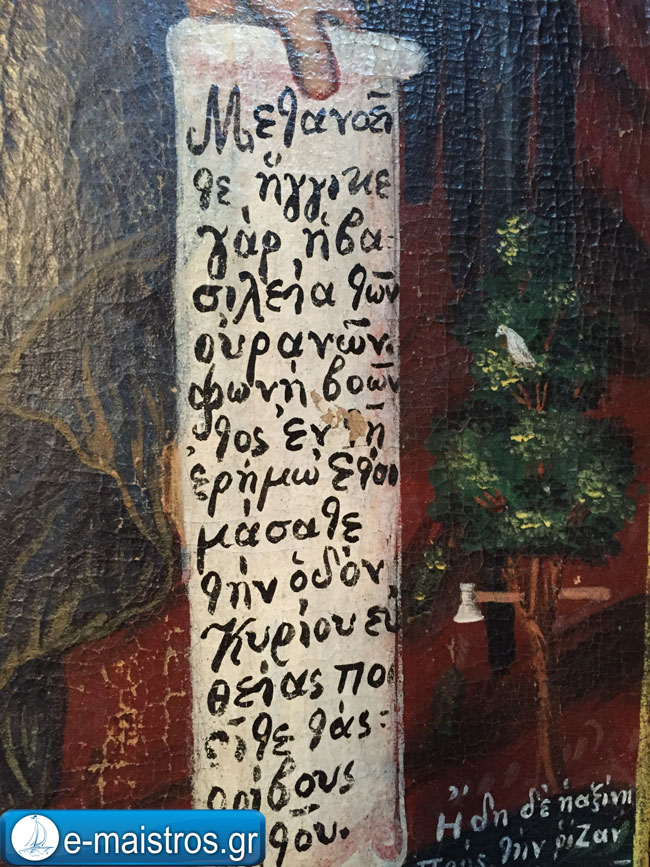 Μετανοεῖ
τε ἤγγικε
γὰρ ἡ βα
σιλεία τῶν
οὐρανῶν.
φωνὴ βοῶν
τος ἐν τῇ
ἐρήμῳ ἑτοι
μάσατε
τὴν ὁδὸν
Κυρίου εὐ
θείας ποι
εῖτε τὰς
τρίβους
Ἤδη δὲ ἡ ἀξίνη
τὴν ῥίζαν
e-maistros.gr